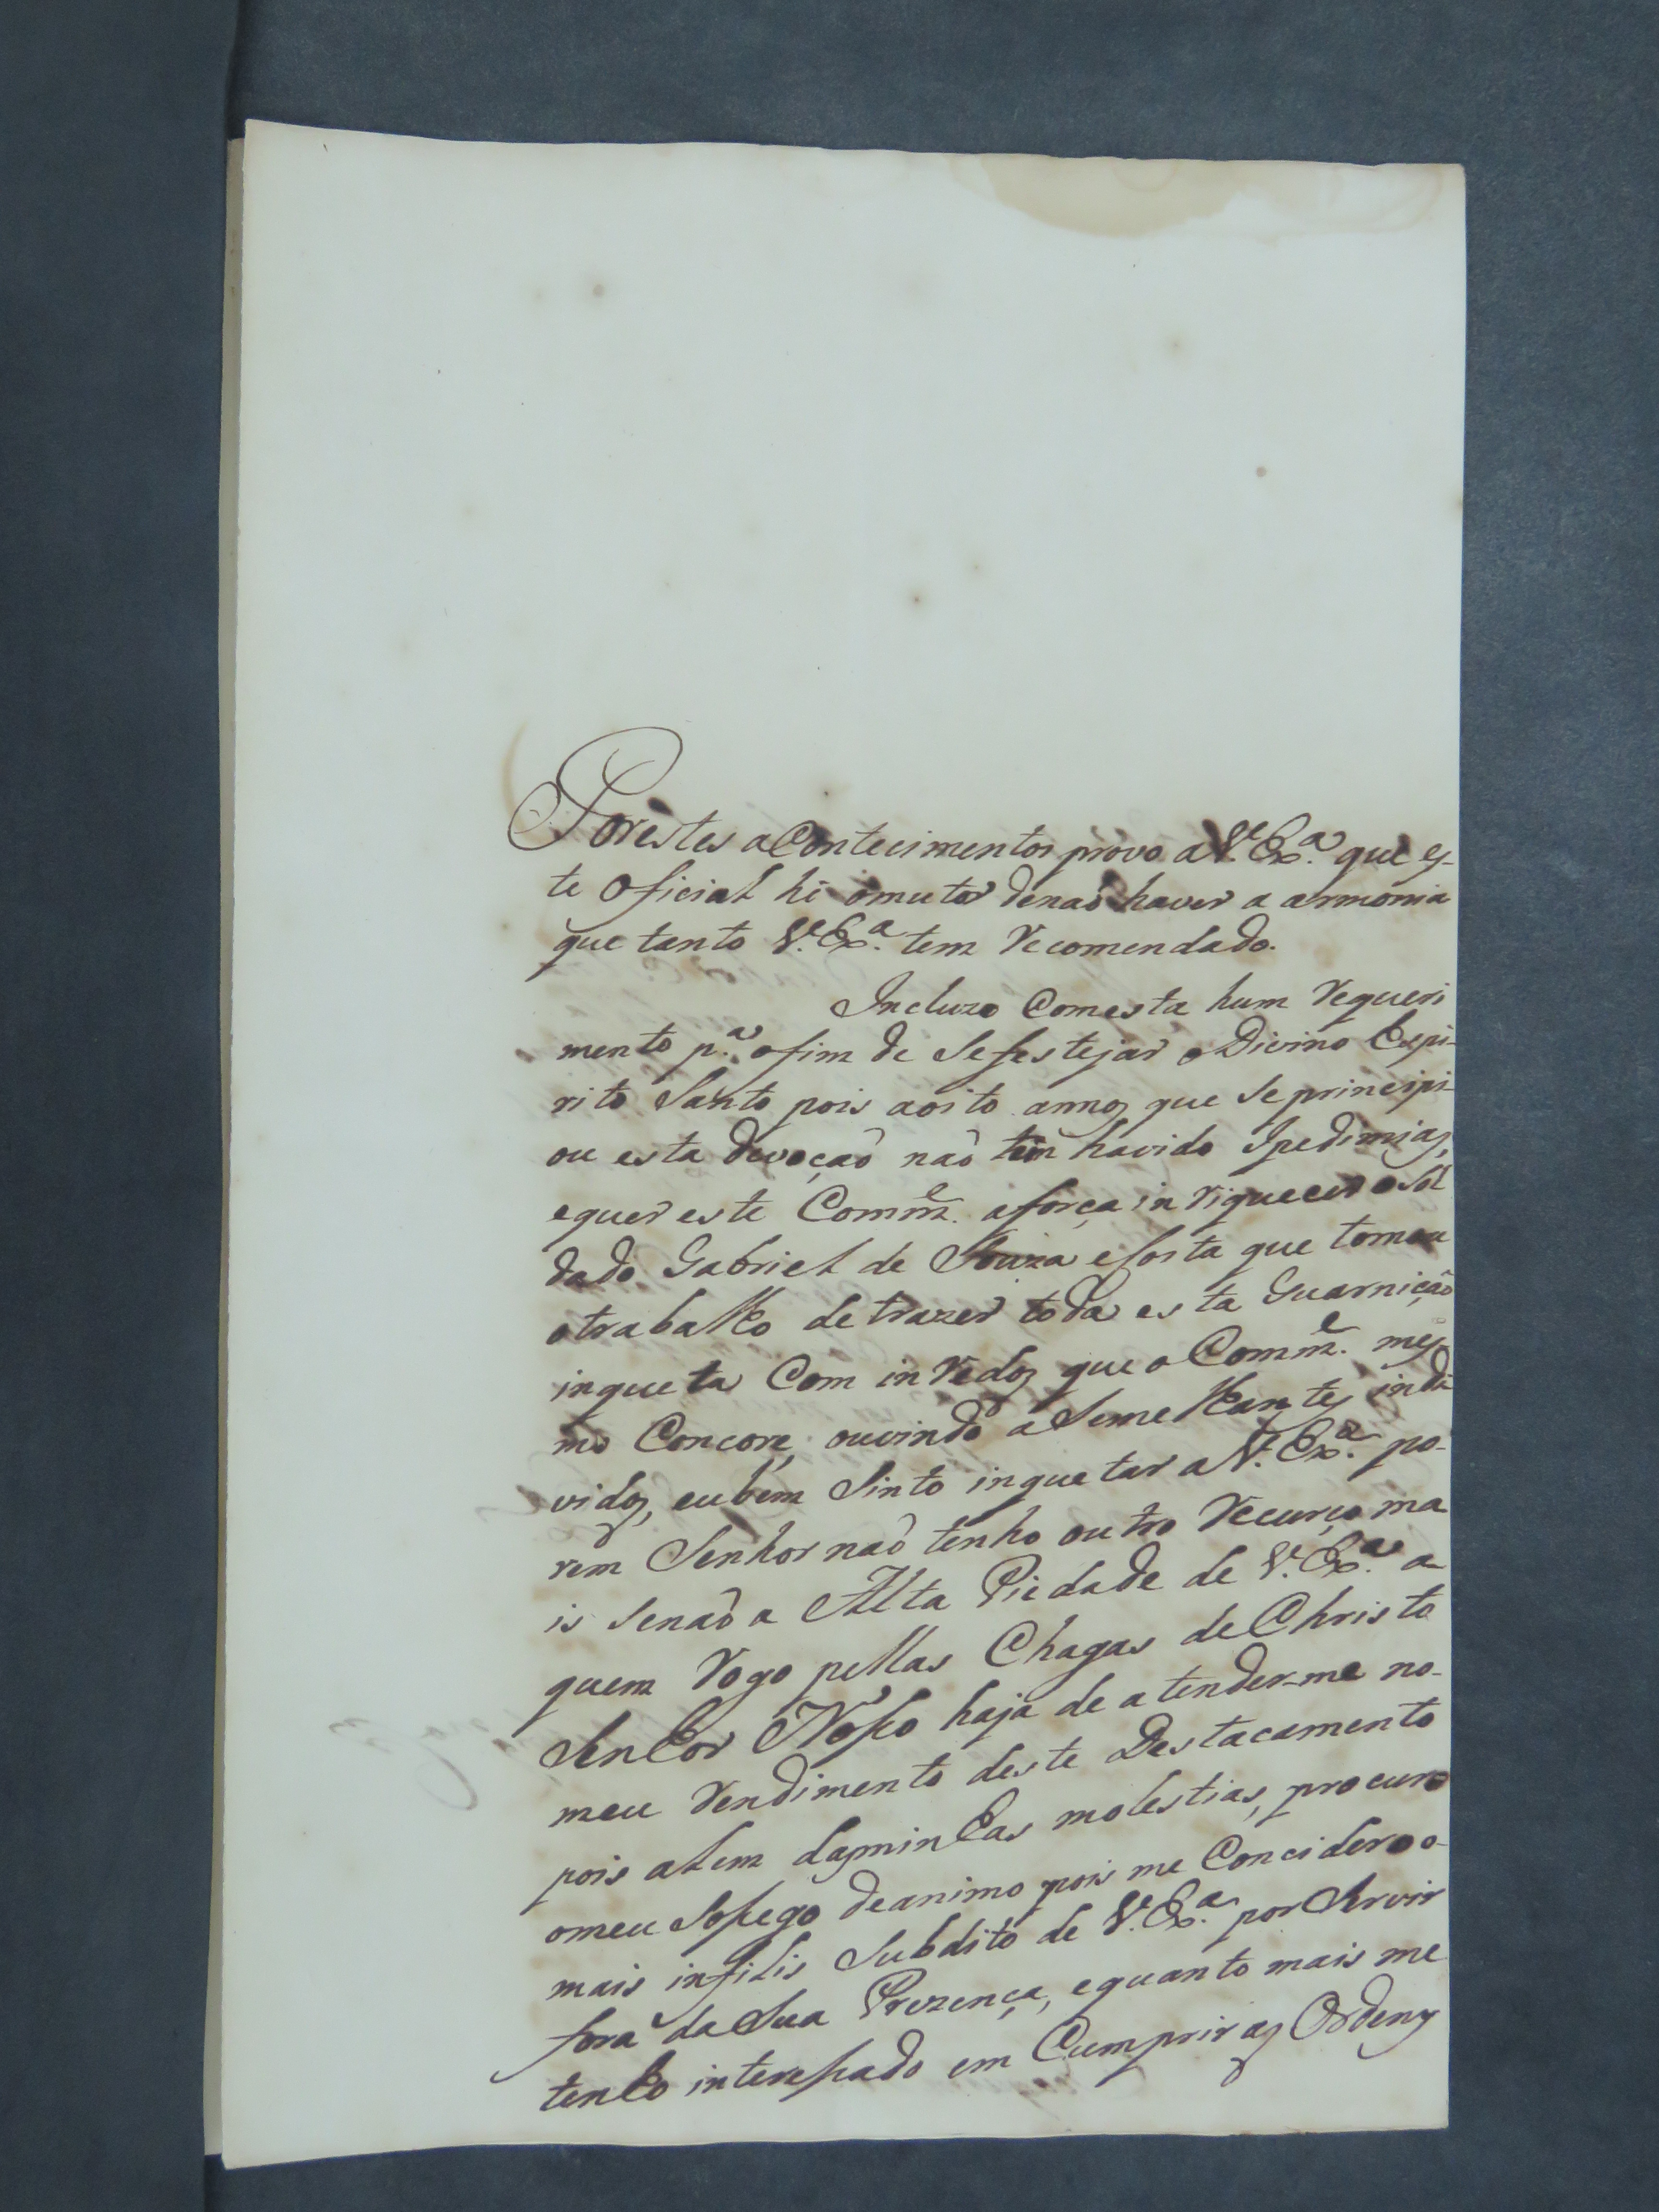 Porestes aContecimentos provo a V. Ex.ª que es-
te Oficial hé omutor denaõ haver a armonia
que tanto V. Ex.ª tem Recomendado.
Incluzo Comesta hum Requeri
mento p.ª ofim de Sefestejar o Divino Espi-
rito Santo pois aoito annos que Se principi-
ou esta devoçaõ naõ tem havido Ipedimias,
equer este Comm.e aforça inRiquecer o Sol
dado Gabriel de Souza eforta que tomou
otrabalho detrazer toda esta Guarniçaõ
inqueta Com inRedos que o Comm.e mes
mo Concore, ouvindo a Semelhantes indi
vidos, eubem Sinto inquetar a V. Ex.ª po-
rem Senhor naõ tenho outro Recurço ma
is Senaõ a Alta Piedade de V. Ex.ª a
quem Rogo pellas Chagas de Christo
Senhor Nosso haja de atender-me no-
meu Rendimento deste Destacamento
pois alem dasminhas molestias, procuro
omeu Sosego deanimo pois me Concidero o-
mais infilis Subdito de V. Ex.ª por Servir
fora da Sua Prezença, equanto mais me
tenho interessado em Cumprir as Ordens